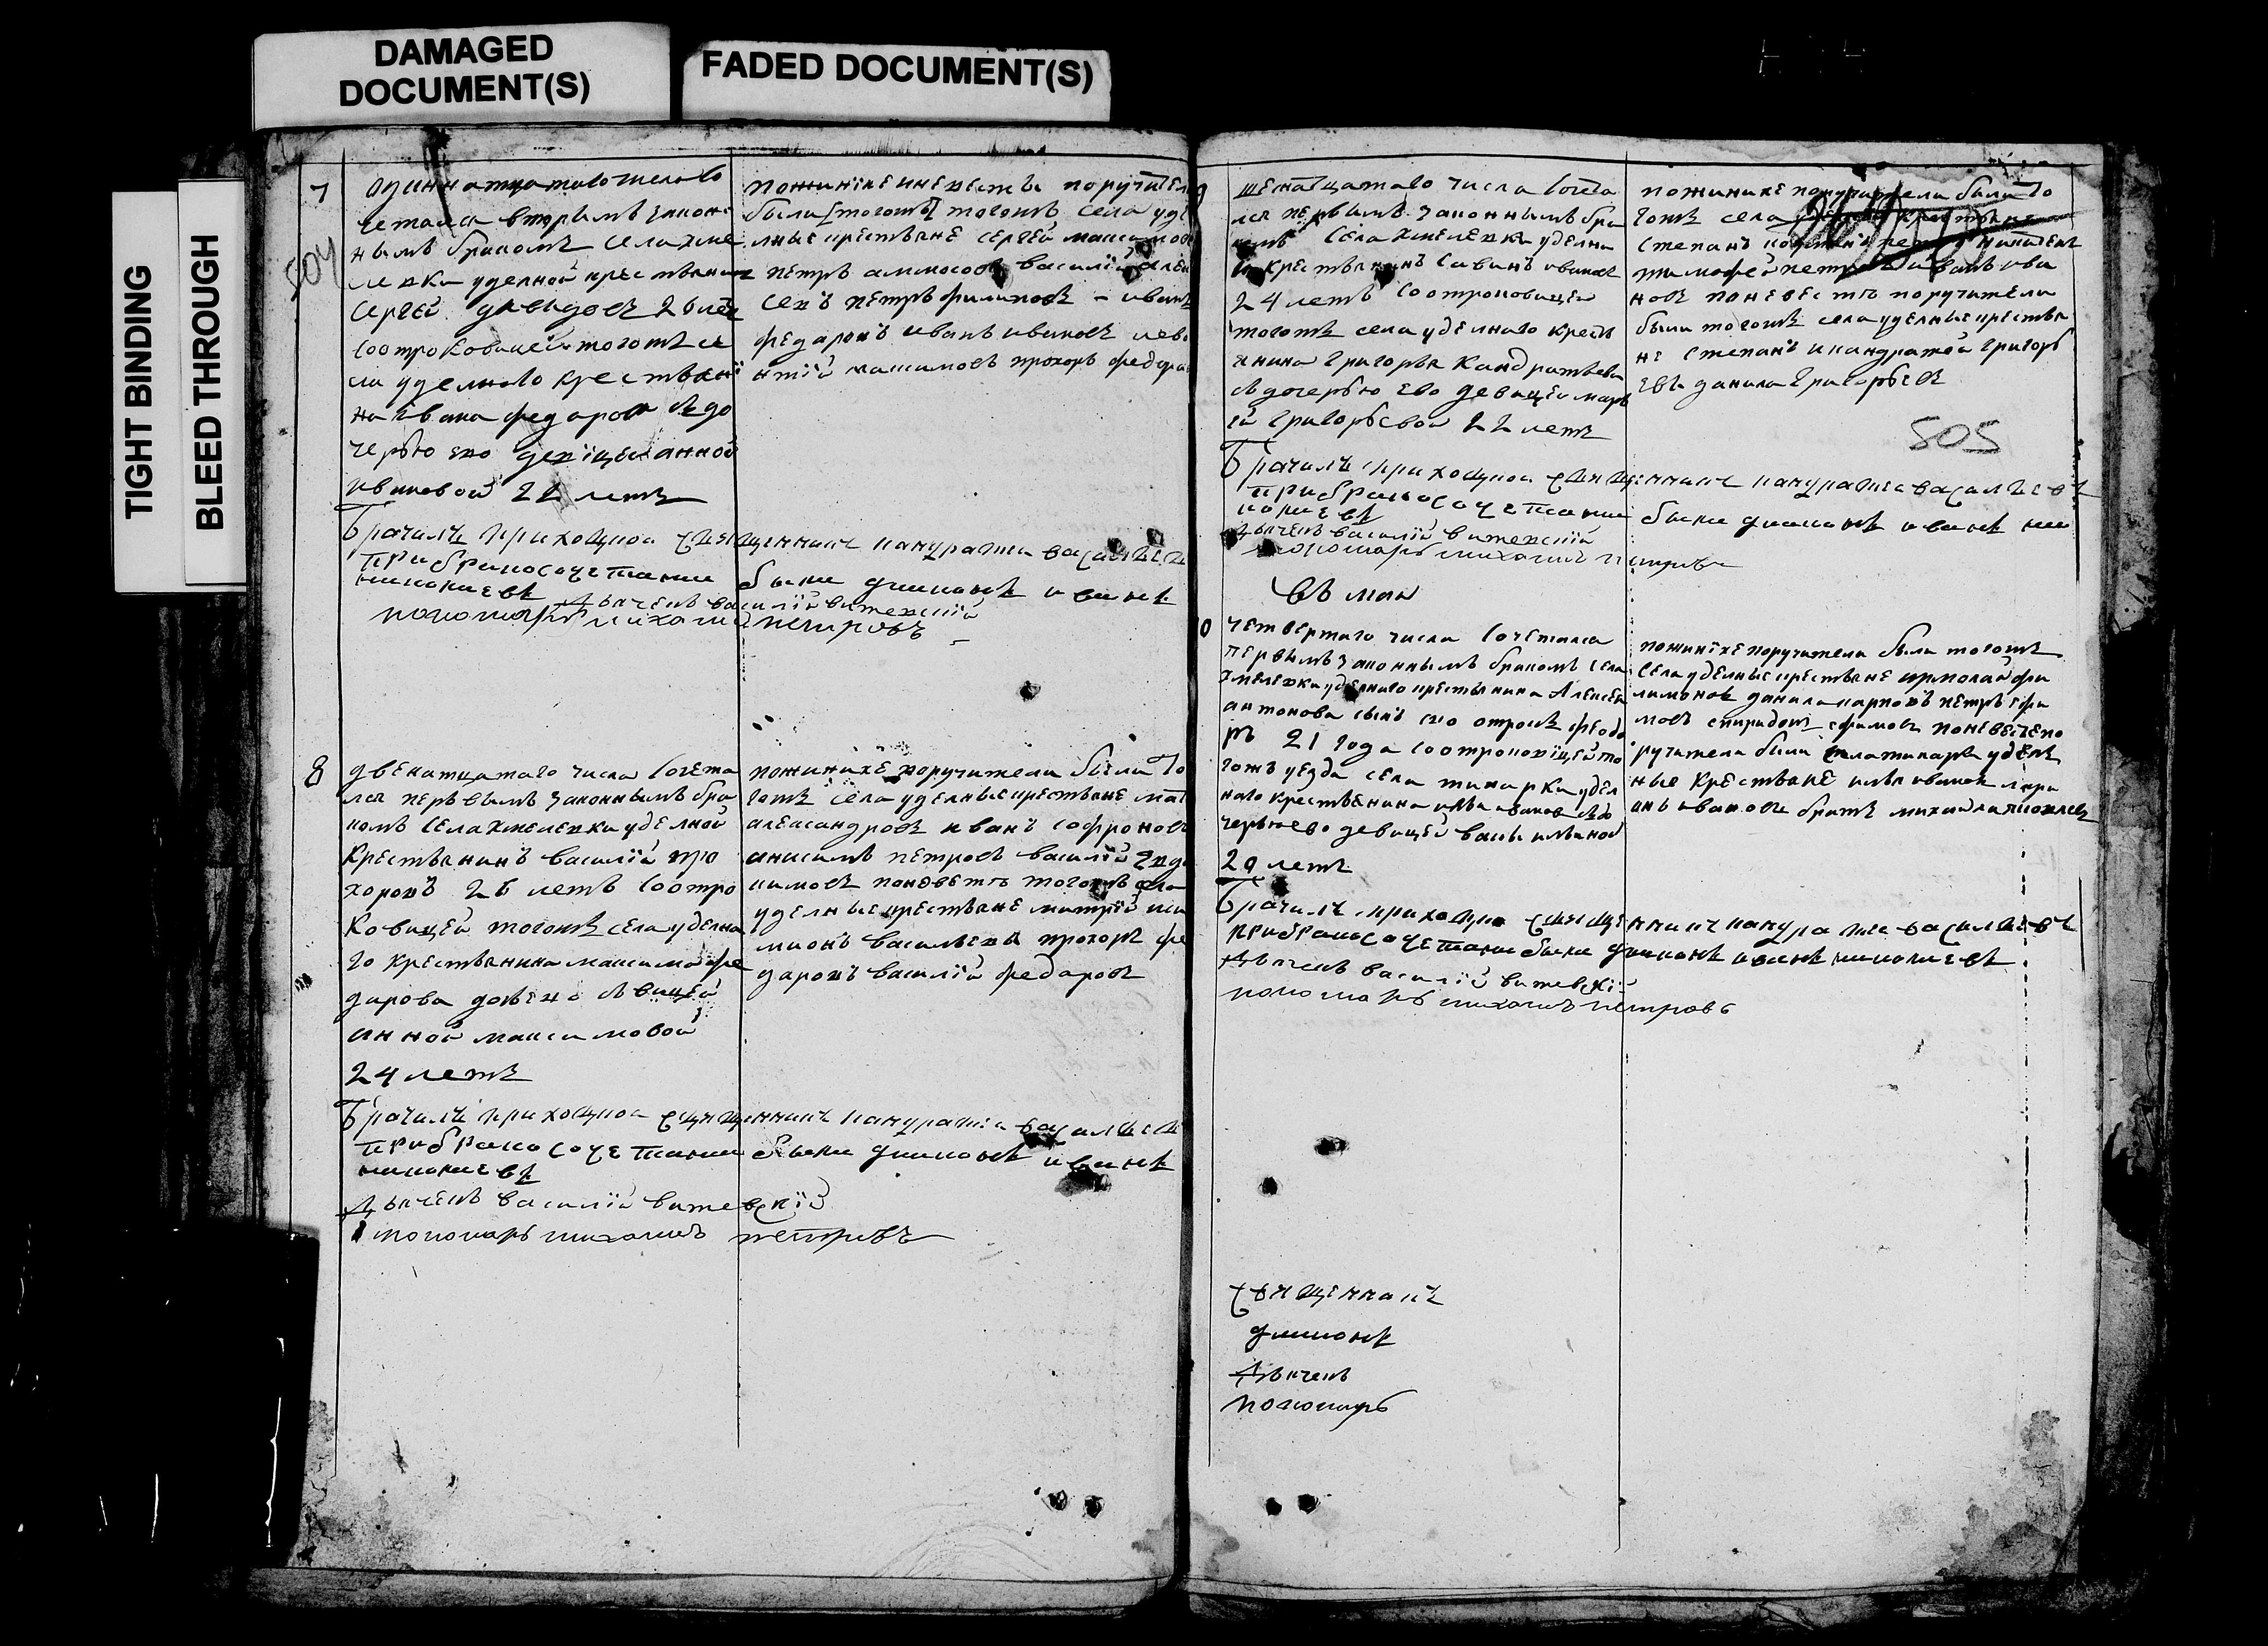 DAMAGED
DOCUMENT(S)
FADED DOCUMENT(S)
TIGHT BINDING
BLEED THROUGH
504
7
одиннатцатаго числа со
четался вторымъ закон
нымъ бракомъ села хме
левки уделной крестьянинъ
Сергей давидовъ 26 лет
соотроковицей тогожъ се
ла уделнаго крестьяни
на ивана федарова здо
черью ево девицей анной
ивановой 22 летъ
пожинихе иневесты поручител
были [тогожъ] тогожъ села уде
лные крестьяне сергей максимовъ
петръ василий
петръ филиповъ - иванъ
федаровъ иванъ ивановъ
максимовъ прохоръ федора
Брачилъ приходцкой священникъ кандратей васильевъ
при бракосочетании были диаконъ иванъ
николаевъ
дьячекъ василий витевский
пономарь михаилъ петровъ
8
двенатцатаго числа сочета
лся первымъ законнымъ бра
комъ села хмелевки уделной
крестьянинъ василий про
хоровъ 25 летъ соотро
ковицей тогожъ села уделна
го крестьянина максима фе
дарова девицей
анной максимовой
24 летъ
пожинихе поручители были то
гожъ села уделные крестьяне
александровъ иванъ софроновъ
анисимъ петровъ василий
кимовъ поневесте тогожъ села
уделные крестьяне митрий
васильевъ прохоръ фе
даровъ василий федаровъ
Брачилъ приходцкой священникъ кандратей васильевъ
при бракосочетании были диаконъ иванъ
николаевъ
дьячекъ василий витевский
пономарь михаилъ петровъ
9
шеснатцатаго числа сочета
лся первымъ законнымъ бра
комъ села хмелевки уделна
й крестьянинъ савинъ ивановъ
24 летъ соотроковицей
тогожъ села уделнаго кресть
янина григорья кандратьева
здочерью ево девицей марь
ей григорьевой 22 летъ
пожинихе поручители были то
гожъ села уделные крестьяне
степанъ
тимофей петровъ иванъ ива
новъ поневесте поручители
были тогожъ села уделные крестья
не степанъ икандратей григорь
евы данила григорьевъ
505
Брачилъ приходцкой священникъ кандратей васильевъ
при бракосочетании были диаконъ иванъ ни
колаевъ
дьячекъ василий витевский
пономарь михаилъ петровъ
въ маи
10
четвертаго числа сочетался
первымъ законнымъ бракомъ села
хмелевки уделнаго крестьянина Алексея
антонова сынъ ево отрокъ федо
ръ 21 года соотроковицей то
гожъ уезда села тинарки удел
наго крестьянина ильи иванова здо
черью ево девицей ильиной
20 летъ
пожинихе поручители были тогожъ
села уделные крестьяне ермолай фи
лимоновъ данила карповъ петръ ефи
мовъ спиридонъ ефимовъ поневесте по
ручители были села тинарки уделъ
ные крестьяне илья ивановъ лари
онъ ивановъ братъ михайла
Брачилъ приходцкой священникъ кандратей васильевъ
при бракосочетании были диаконъ иванъ николаевъ
дьячекъ василий витевский
пономарь михаилъ петровъ
священникъ
диаконъ
дьячекъ
пономарь